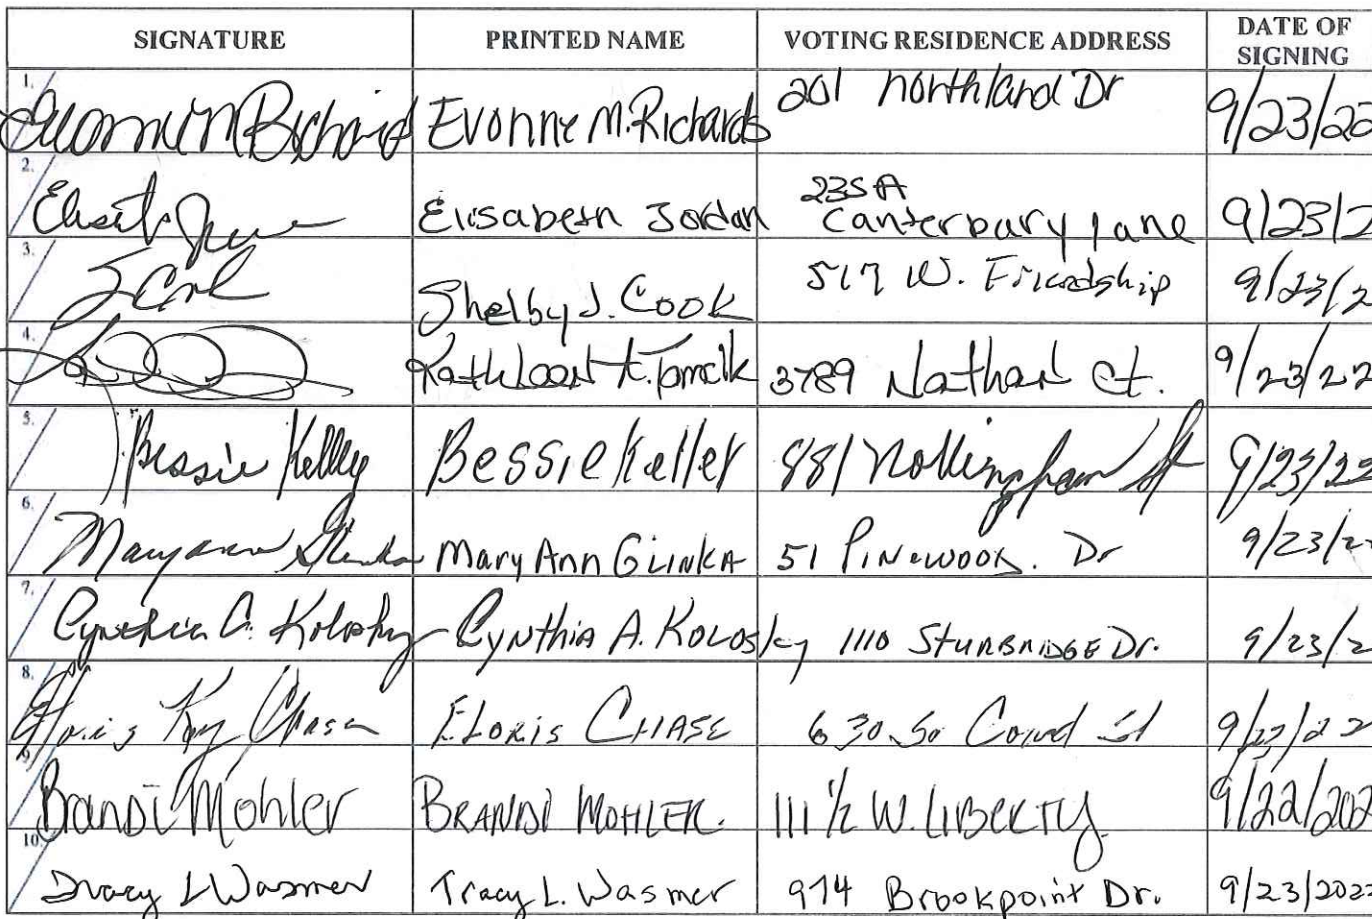 SIGNATURE PRINTED NAME VOTING RESIDENCE ADDRESS DATE OF
SIGNING
1. Evonne M Richards Evonne M. Richards 201 Northland Dr 9/23/202
2. Elisabeth Jordan 235 A
Canterbury Lane 9/23/2
3. Shelby J. Cook 517 W. Friendship 9/23/2
4. Kathleen K. Tomcik 3789 Nathan Ct. 9/23/22
5. Bessie Kelley Bessie Keller 881 Nottingham St 9/23/22
6. Maryann Glinka Mary Ann GLINKA 51 PINEWOOD. Dr 9/23/2
7. Cynthia A. Kolosky CYNTHIA A. KOLOSKY 1110 STURBRIDGE Dr. 9/23/2
8. Floris Kay Chase FLORIS CHASE 630 So Court St 9/22/22
9. Brandi Mohler BRANDI MOHLER 111 1/2 W. LIBERTY 9/22/202
10. Tracy L Wasmer Tracy L. Wasmer 974 Brookpoint Dr. 9/23/2022